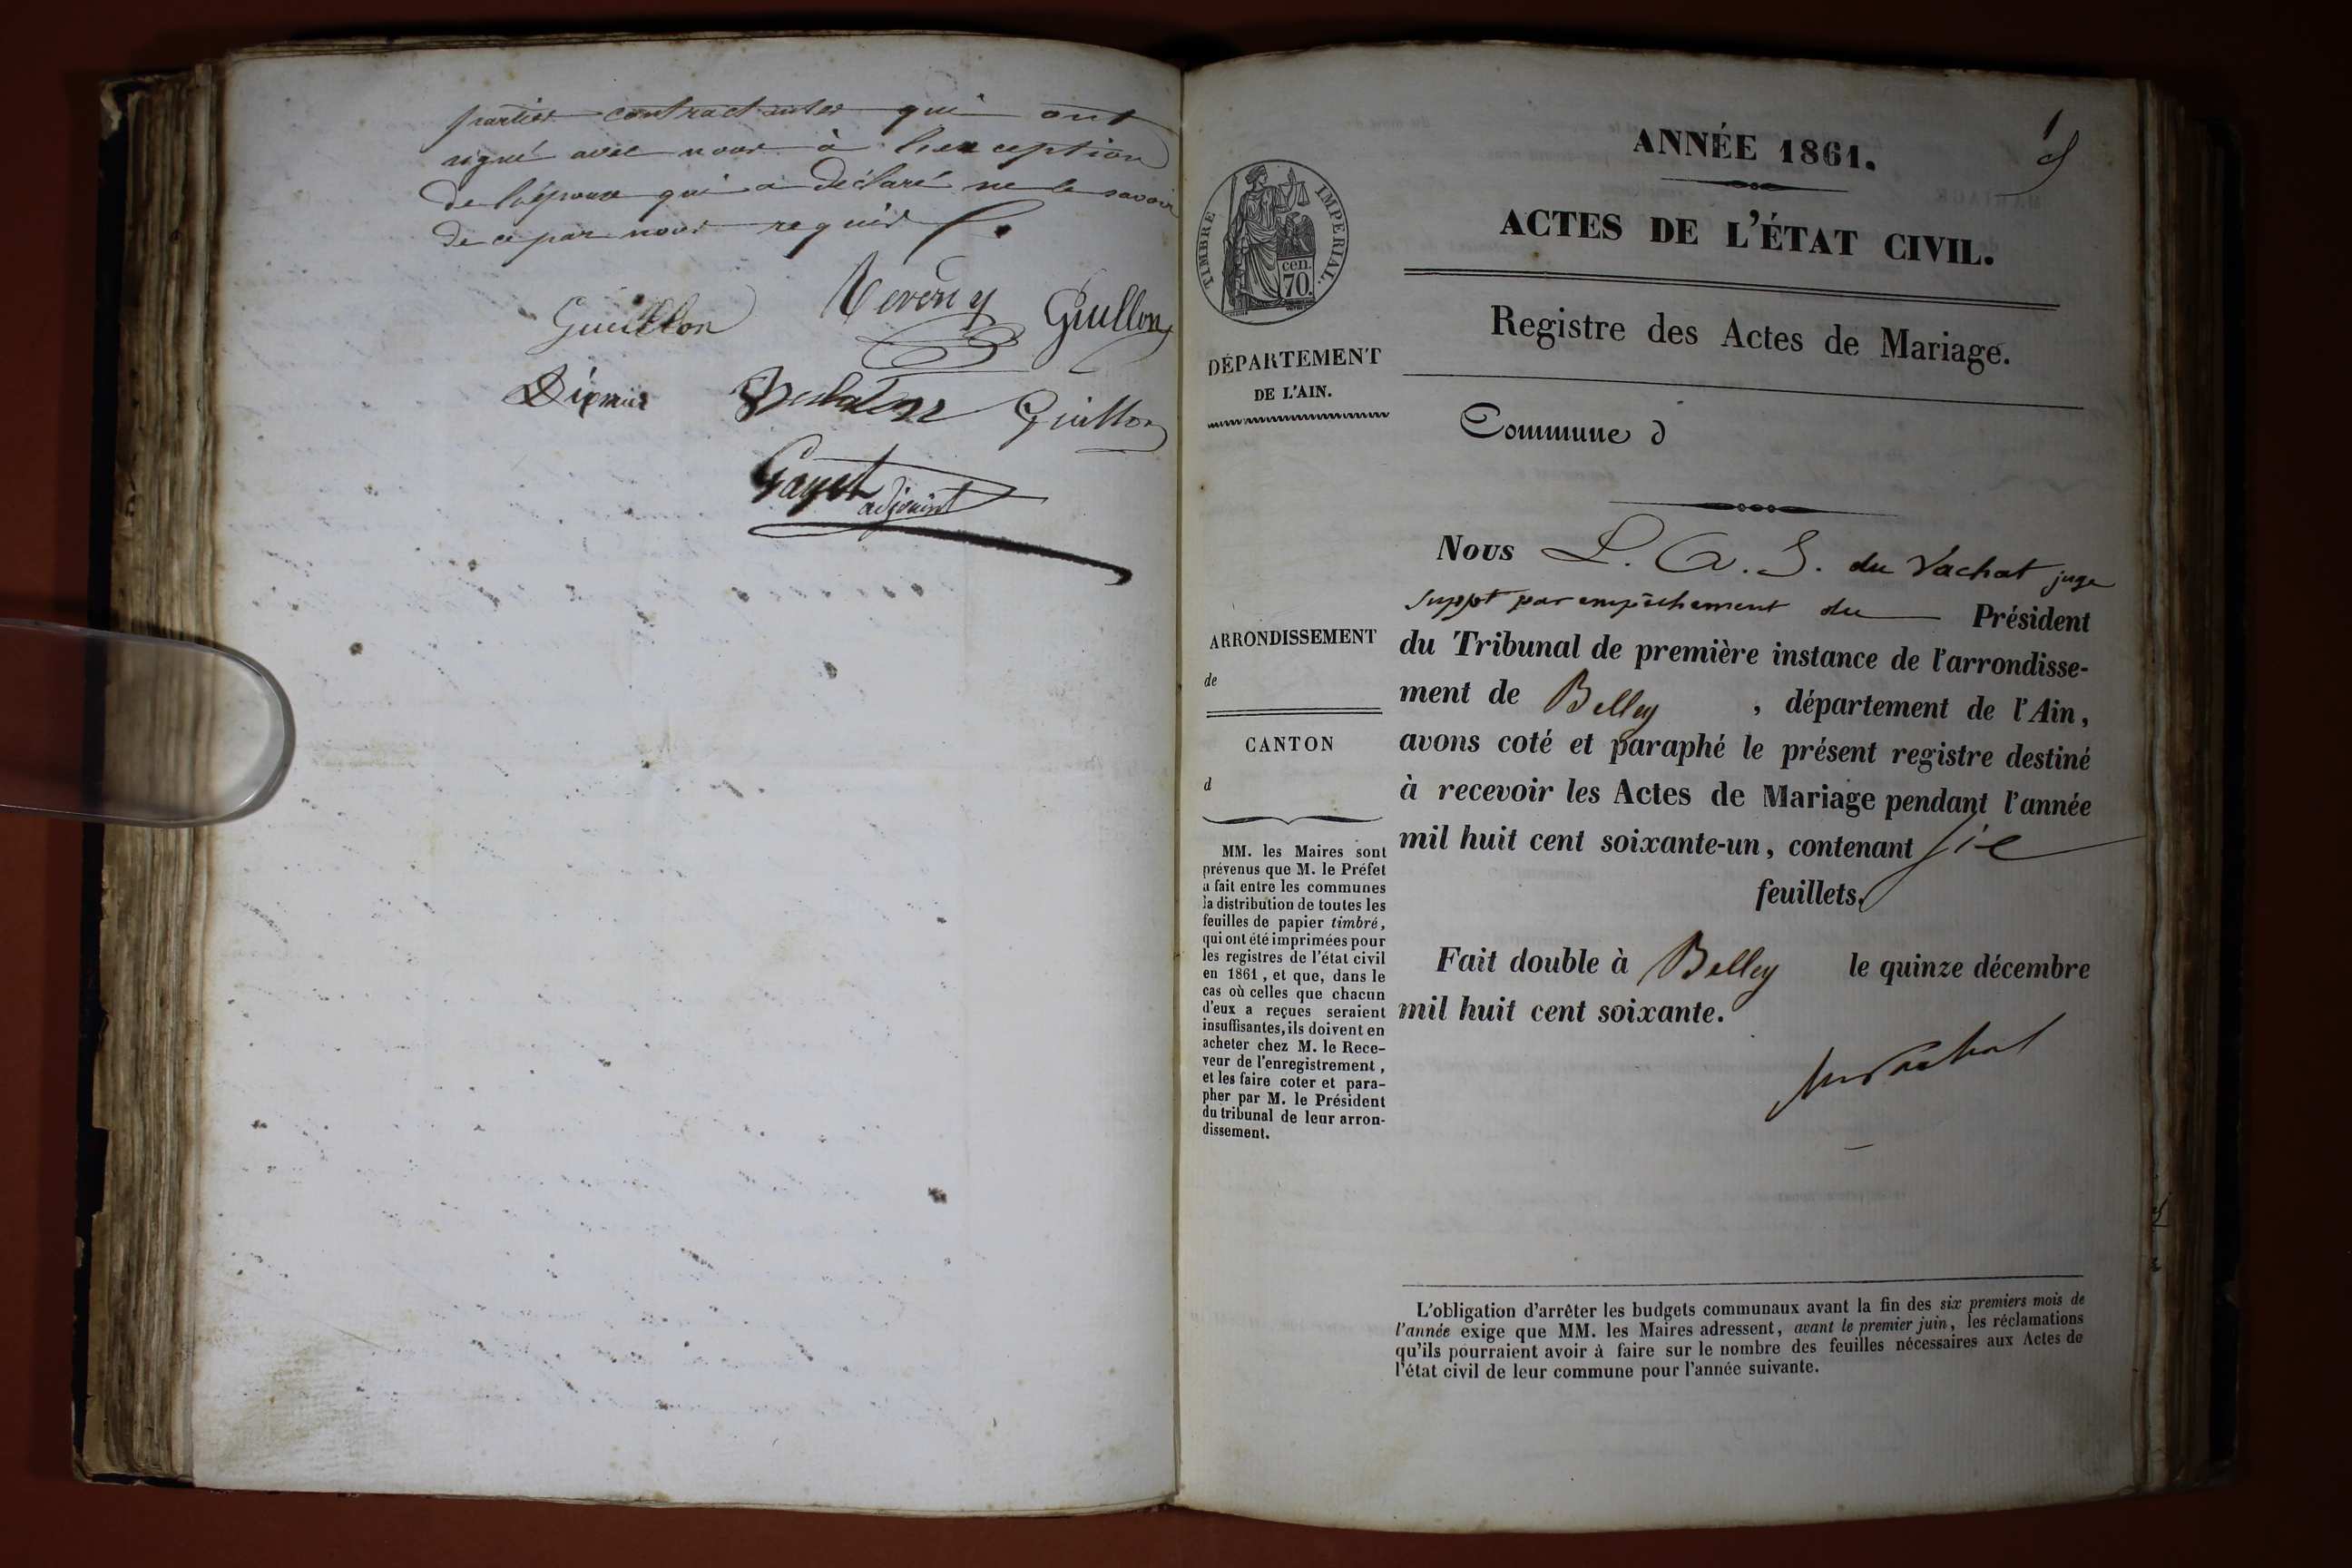 parties contractantes qui ont
signé avec nous à l'exception
de l'épouse qui a déclaré ne le savoir
de ce par nous requis
Guillon
Guillon
Guillon
Gayet adjoint
1
ANNÉE 1861.
ACTES DE L'ÉTAT CIVIL.
Registre des Actes de Mariage.
Commune d
TIMBRE IMPERIAL.
cen.
70.
DÉPARTEMENT
DE L'AIN.
ARRONDISSEMENT
de
CANTON
d
MM. les Maires sont
prévenus que M. le Préfet
a fait entre les communes
la distribution de toutes les
feuilles de papier timbré,
qui ont été imprimées pour
les registres de l'état civil
en 1861, et que, dans le
cas où celles que chacun
d'eux a reçues seraient
insuffisantes, ils doivent en
acheter chez M. le Rece-
veur de l'enregistrement,
et les faire coter et para-
pher par M. le Président
du tribunal de leur arron-
dissement.
Nous L. A. S. du Vachat juge
suppt par empêchement du Président
du Tribunal de première instance de l'arrondisse-
ment de Belley, département de l'Ain,
avons coté et paraphé le présent registre destiné
à recevoir les Actes de Mariage pendant l'année
mil huit cent soixante-un, contenant six
feuillets.
Fait double à Belley le quinze décembre
mil huit cent soixante.
du Vachat
L'obligation d'arrêter les budgets communaux avant la fin des six premiers mois de
l'année exige que MM. les Maires adressent, avant le premier juin, les réclamations
qu'ils pourraient avoir à faire sur le nombre des feuilles nécessaires aux Actes de
l'état civil de leur commune pour l'année suivante.